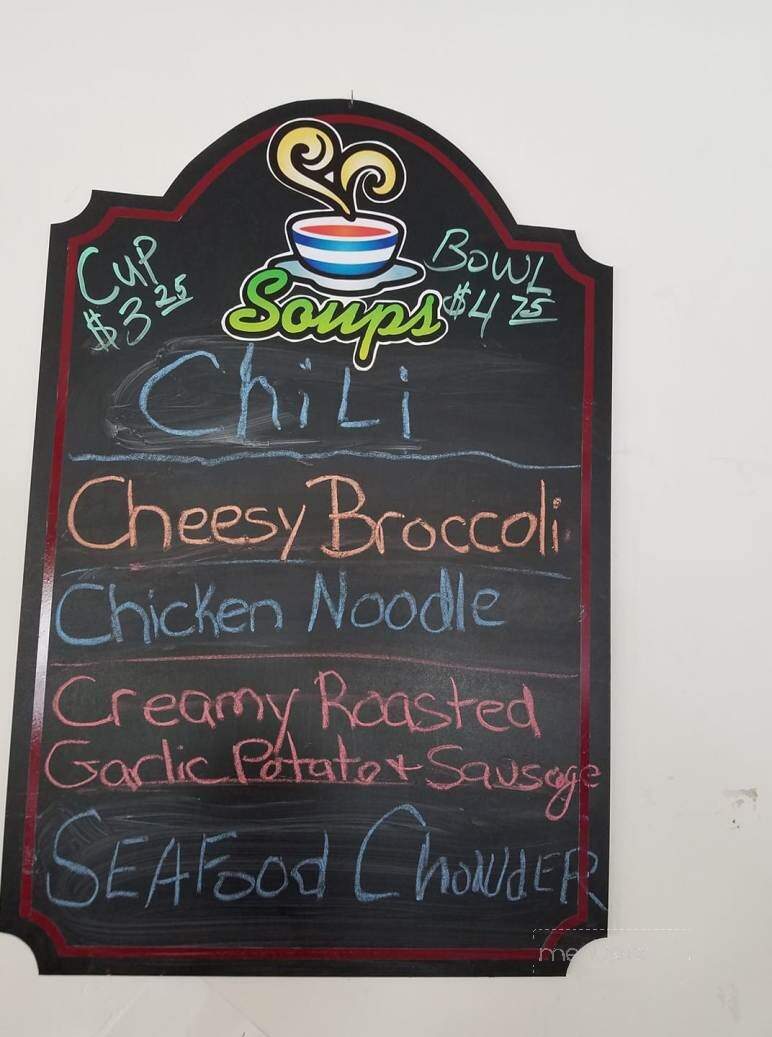 CUP
$3 25
BOWL
$4 75
Soups
ChiLi
Cheesy Broccoli
Chicken Noodle
Creamy Roasted
Garlic Potato + Sausage
SEAFood ChowdER